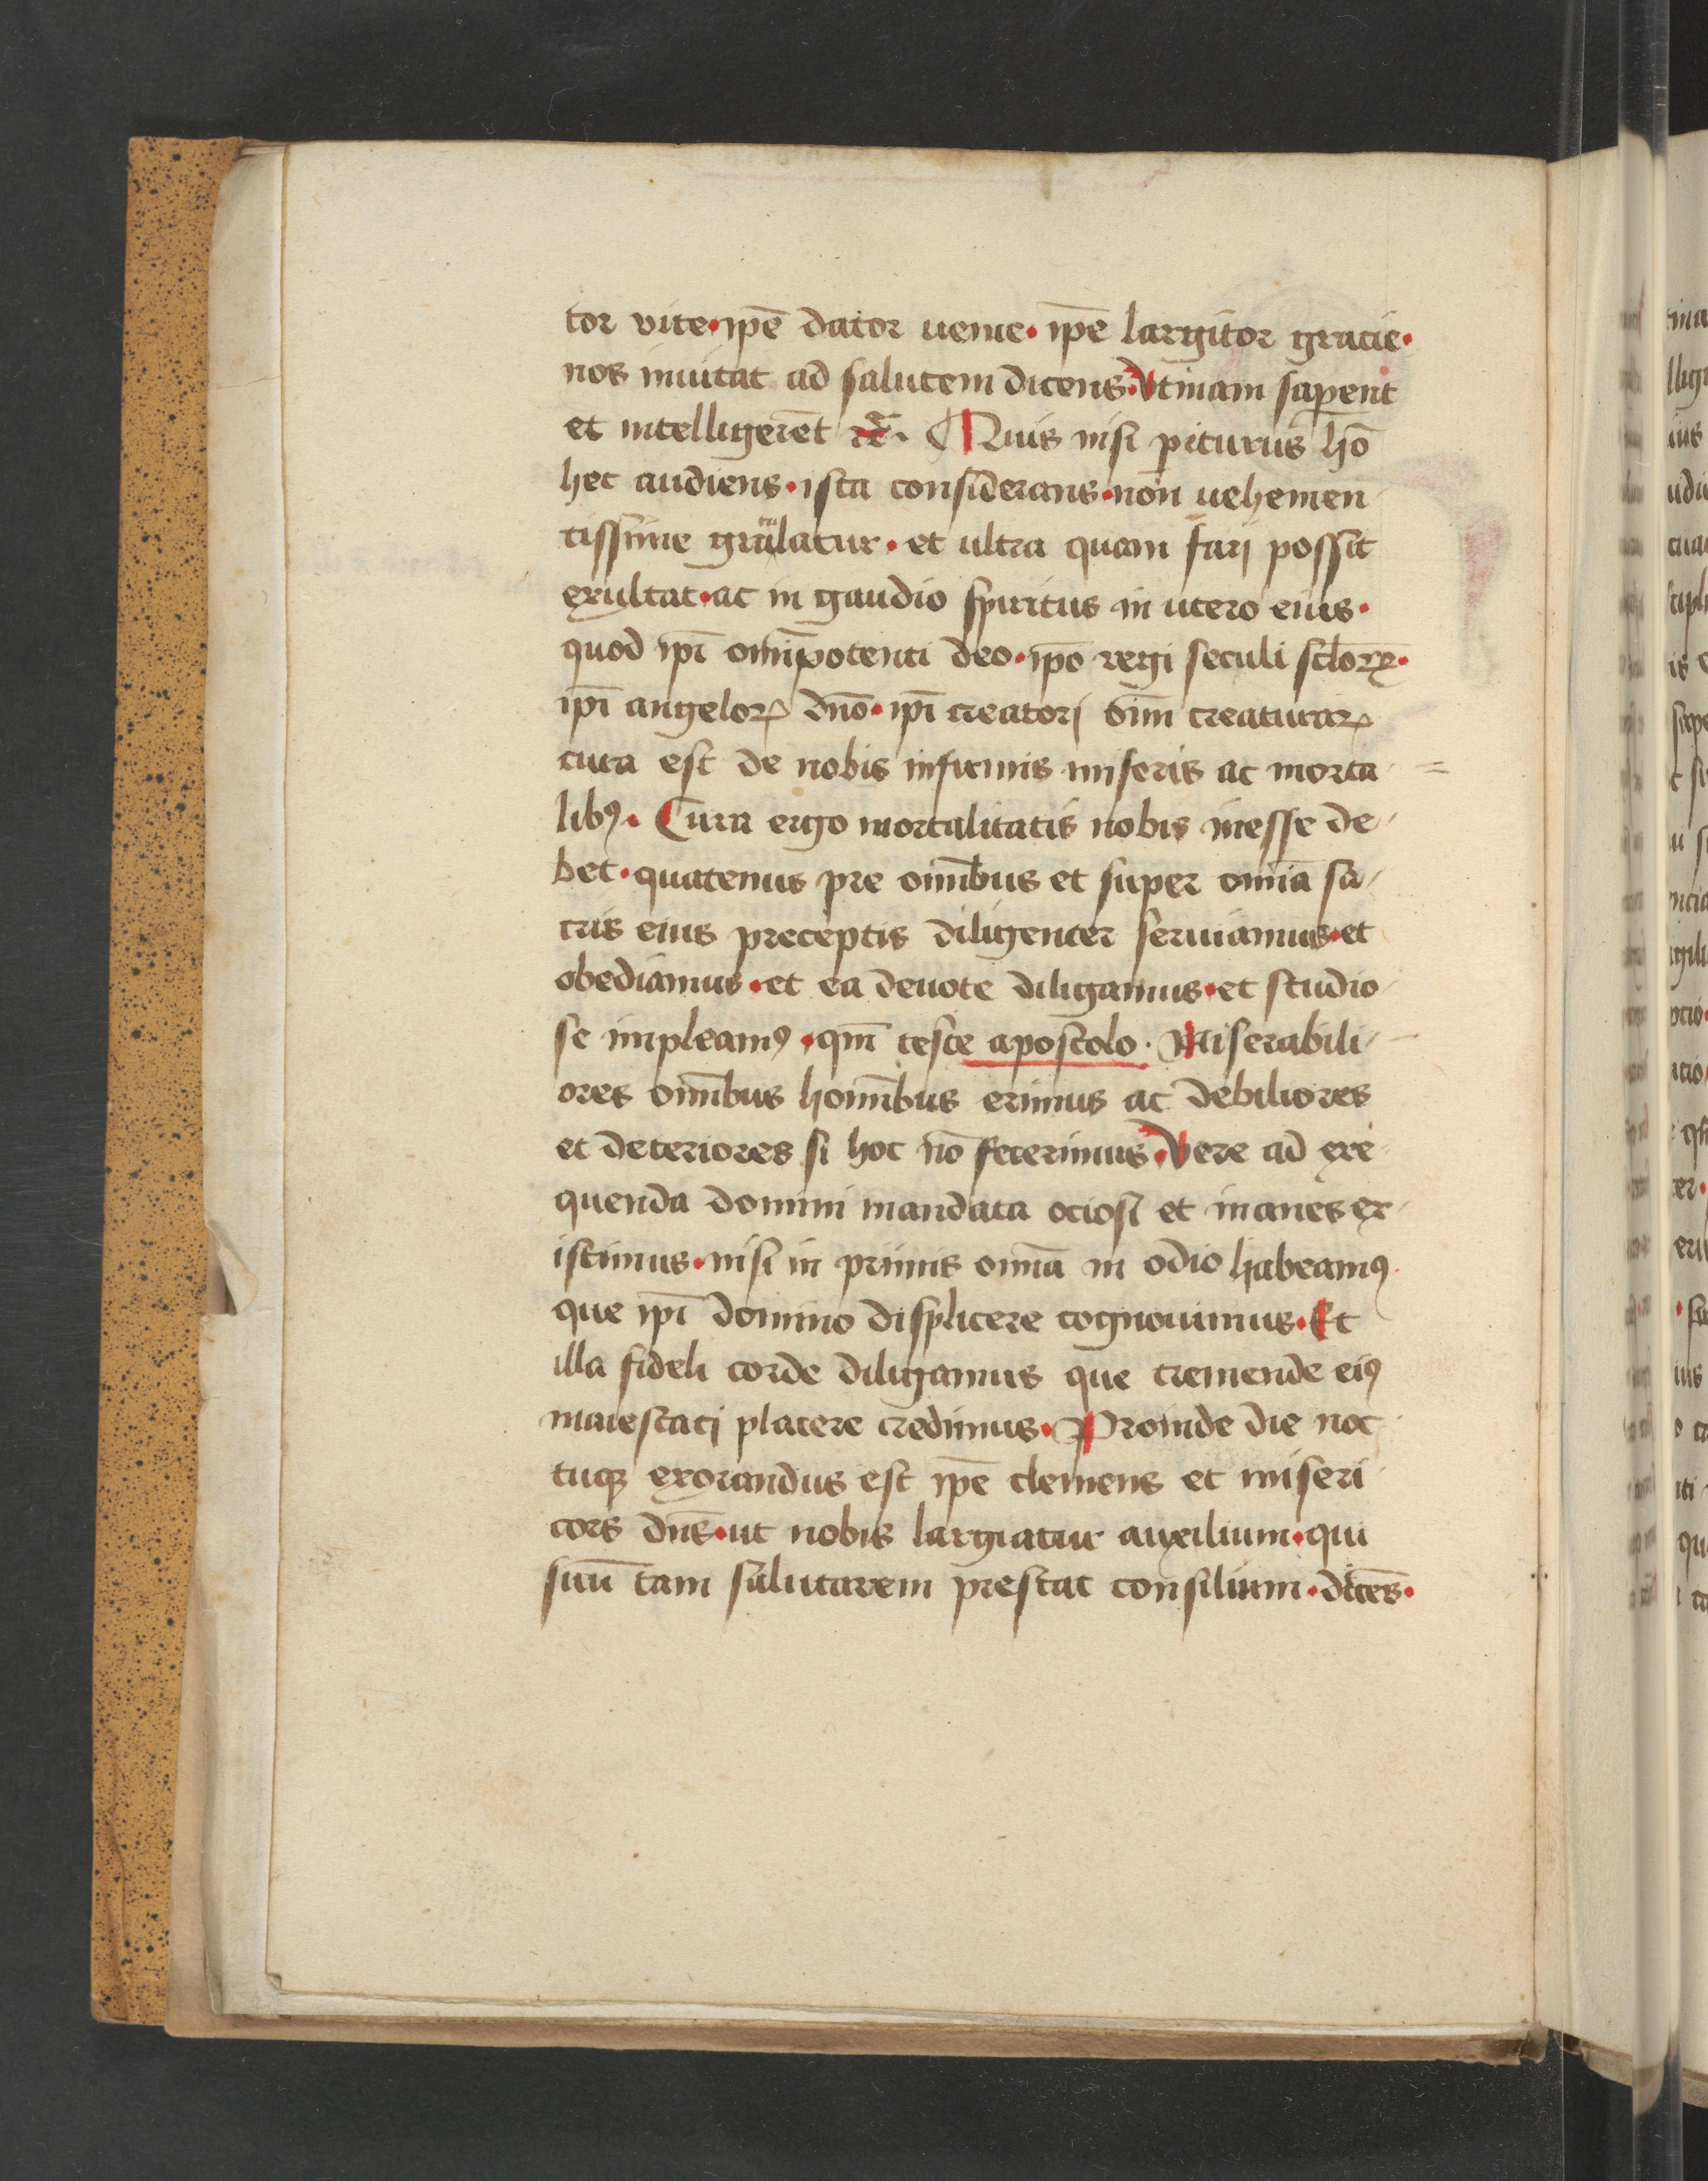 tor vite · ip̄e dator uenie · ip̄e largitor gracie ·
nos inuitat ad salutem dicens · Vtinam saperent
et intelligerēt ⁊c̄ . Quis nisi piturus hō
hec audiens · ista considerans · non uehemen
tissime gratulatur · et ultra quam farj possit
exultat · ac in gaudio spiritus in utero eius ·
quod ip̄i om̄ipotenti deo · ip̄o regi seculi scl̄oꝝ ·
ip̄i angeloꝝ dn̄o · ip̄i creatorj om̄m creaturaꝝ
cura est de nobis infirmis miseris ac morta
libꝰ · Cura ergo mortalitatis nobis inesse de
bet · quatenus pre om̄ibus et super om̄ia sa
cris eius preceptis diligenter seruiamus · et
obediamus · et ea deuote diligamus · et studio
se impleamꝰ · qm̄ teste apostolo · Miserabili
ores om̄ibus homībus erimus ac debiliores
et deteriores si hoc nō fecerimus · Vere ad exe
quenda domini mandata ociosi et inanes ex
istimus · nisi in primis om̄ia in odio habeamꝰ
que ip̄i domino displicere cognouimus · Et
illa fideli corde diligamus que tremende eiꝰ
maiestatj placere credimus · Proinde die noc
tuqꝫ exorandus est ip̄e clemens et miseri
cors dn̄s · ut nobis largiatur auxilium · qui
suū tam salutarem prestat consilium · dicēs ·